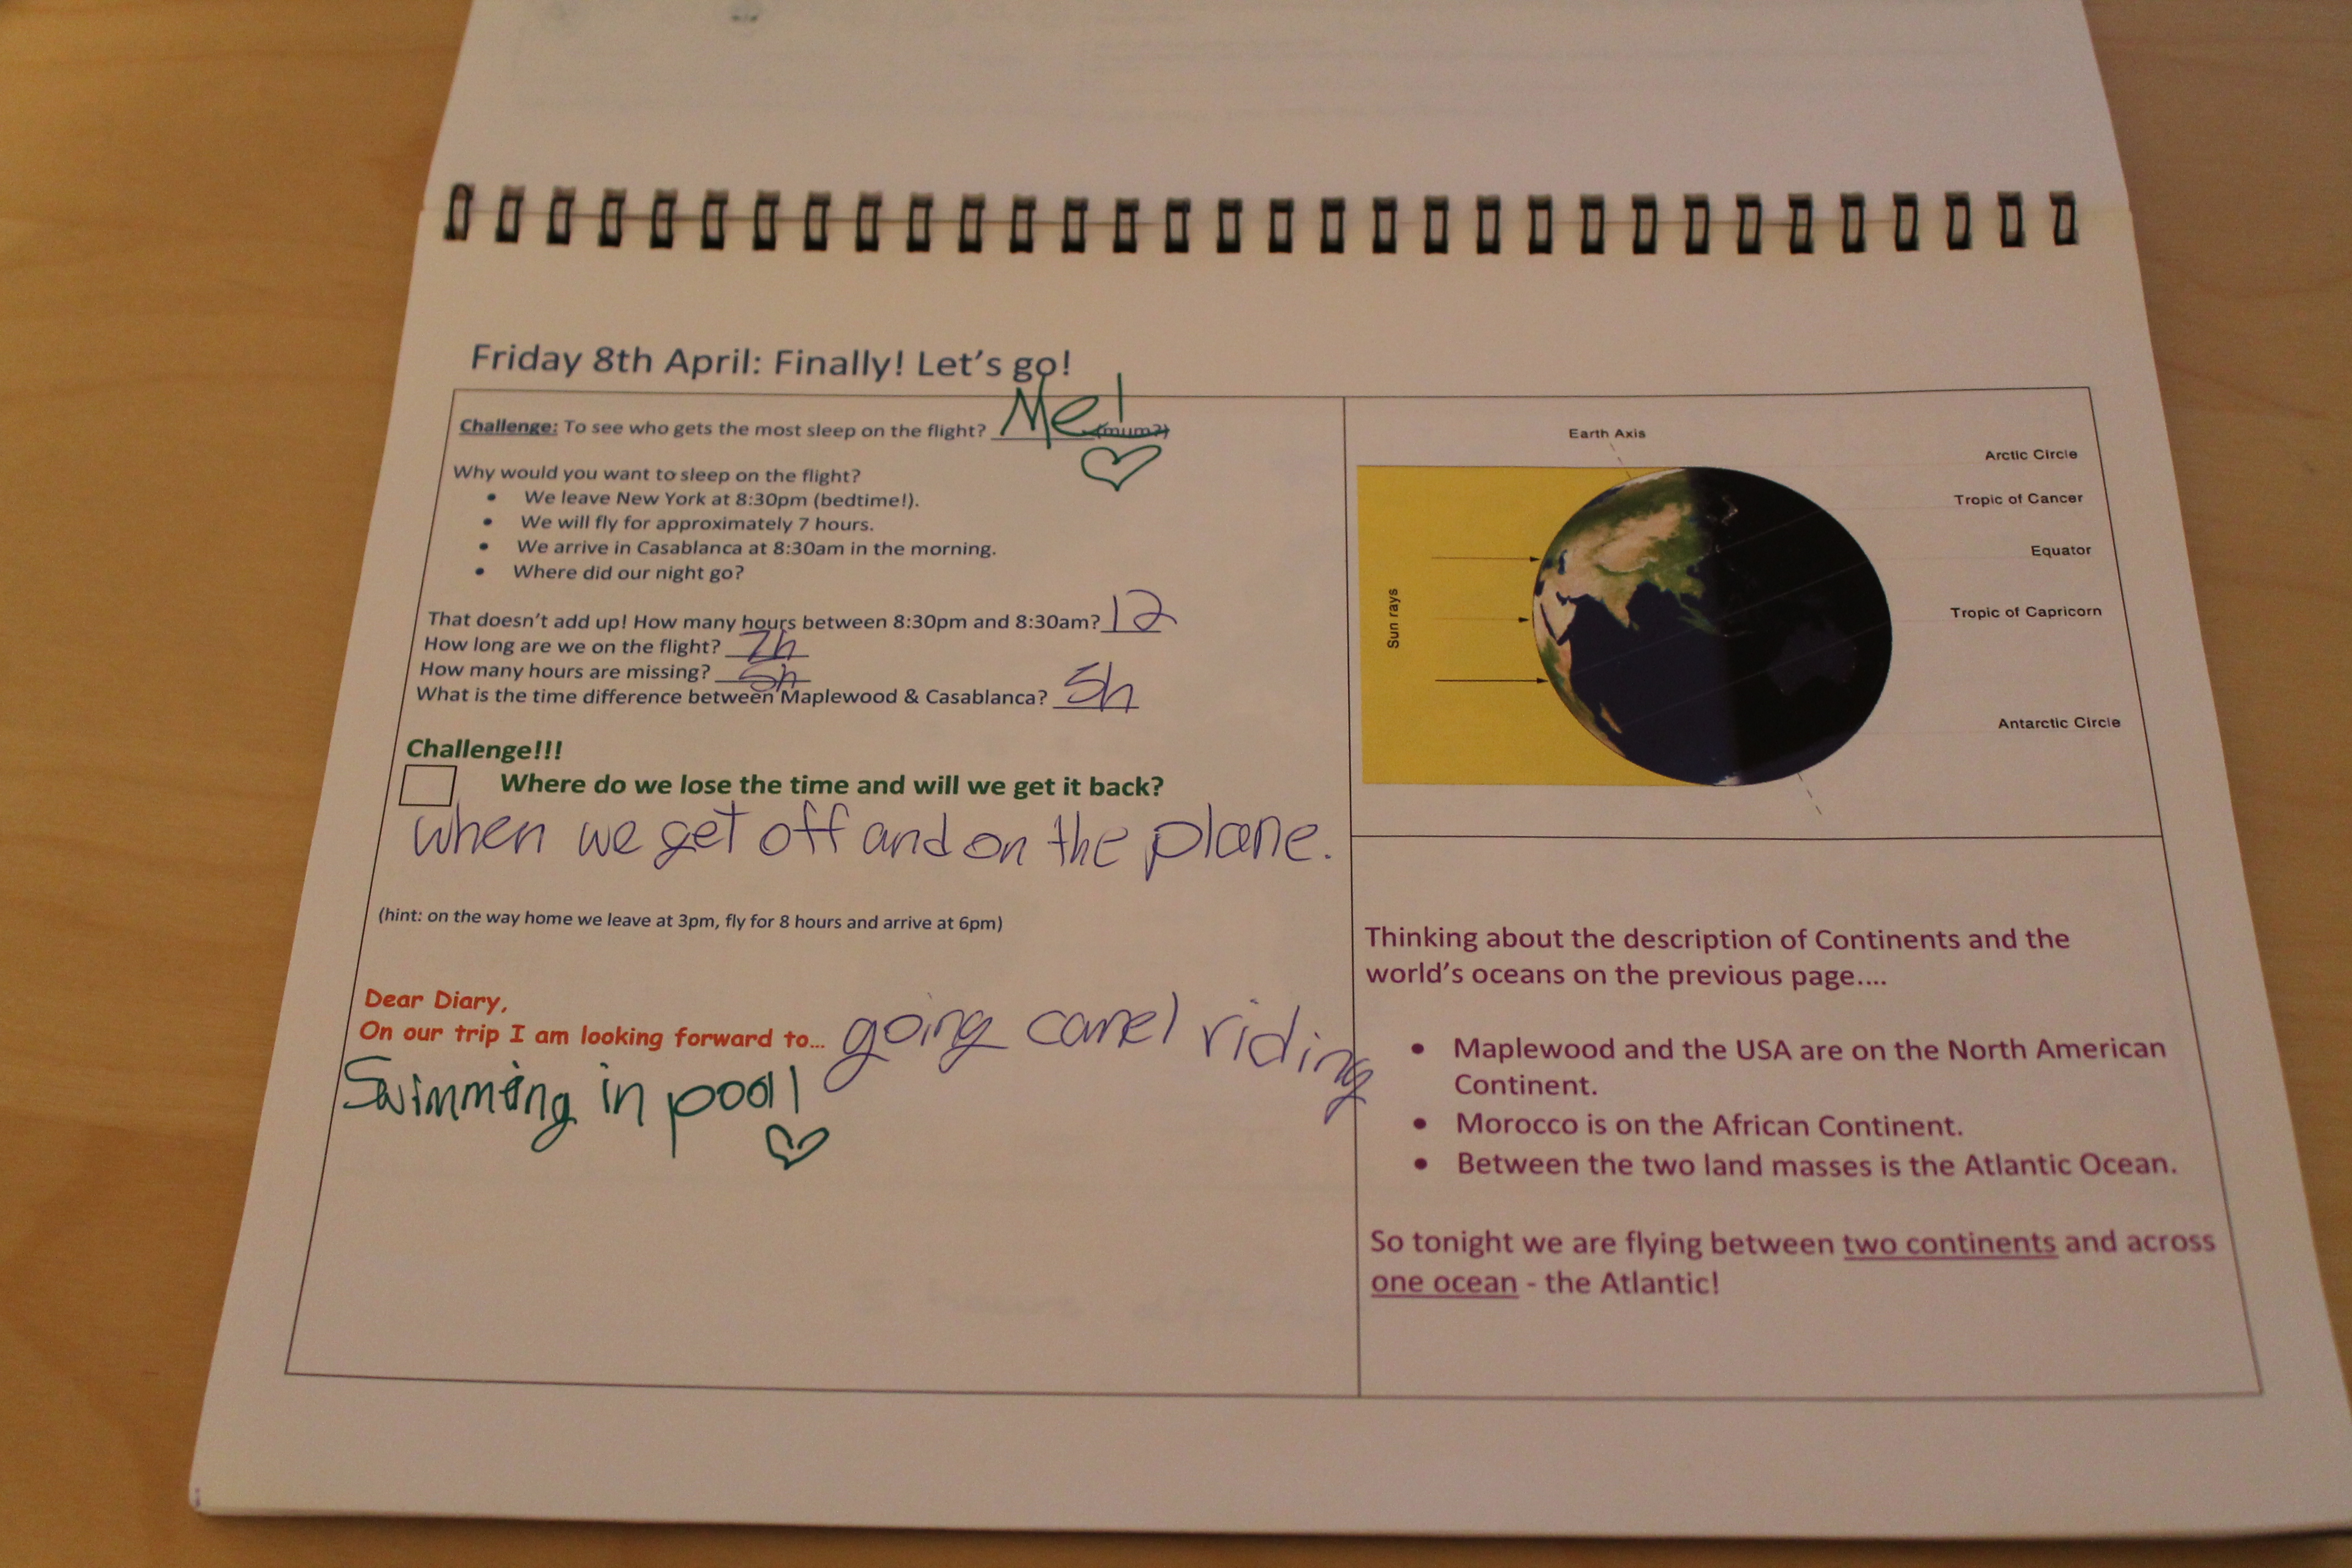 Friday 8th April: Finally! Let's go!
Challenge: To see who gets the most sleep on the flight? Me! (mum?)
Why would you want to sleep on the flight?
• We leave New York at 8:30pm (bedtime!).
• We will fly for approximately 7 hours.
• We arrive in Casablanca at 8:30am in the morning.
• Where did our night go?
That doesn't add up! How many hours between 8:30pm and 8:30am? 12
How long are we on the flight? 7h
How many hours are missing? 5h
What is the time difference between Maplewood & Casablanca? 5h
Challenge!!!
Where do we lose the time and will we get it back?
when we get off and on the plane.
(hint: on the way home we leave at 3pm, fly for 8 hours and arrive at 6pm)
Dear Diary,
On our trip I am looking forward to... going camel riding
Swimming in pool
Earth Axis
Arctic Circle
Tropic of Cancer
Equator
Tropic of Capricorn
Antarctic Circle
Sun rays
Thinking about the description of Continents and the
world's oceans on the previous page....
• Maplewood and the USA are on the North American
Continent.
• Morocco is on the African Continent.
• Between the two land masses is the Atlantic Ocean.
So tonight we are flying between two continents and across
one ocean - the Atlantic!